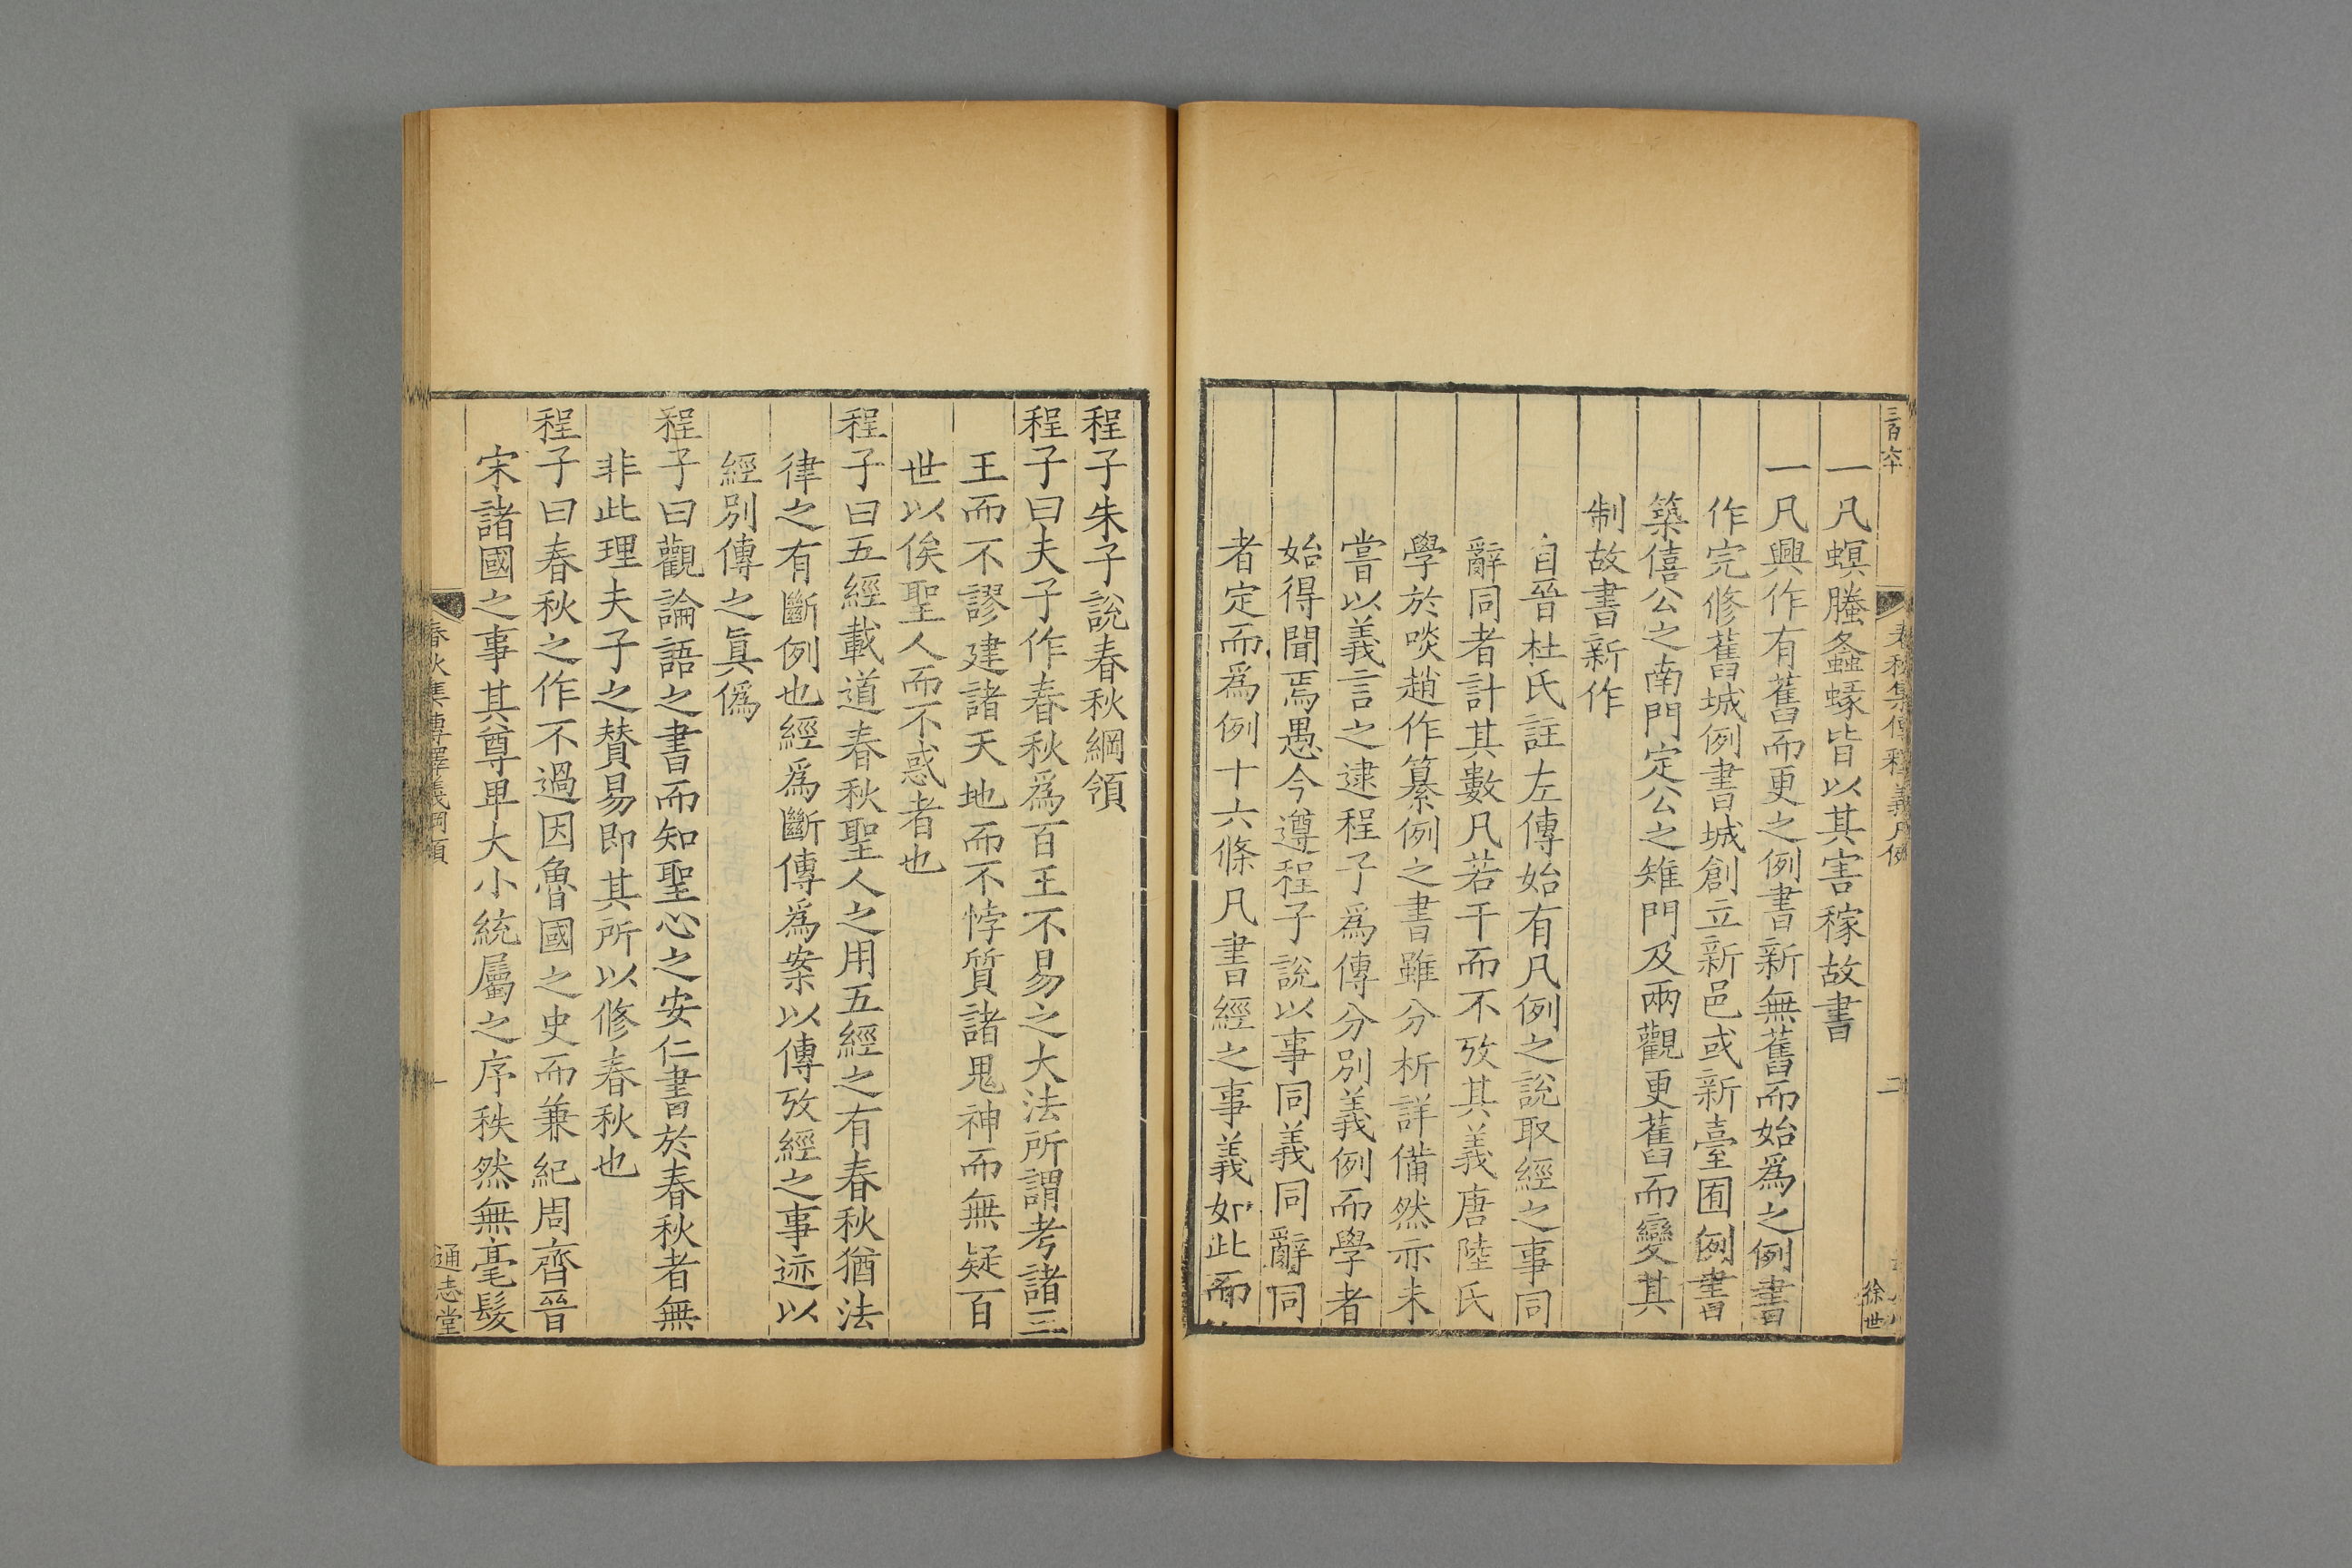 春秋集傳釋義凡例
二
徐世
一凡螟螣螽蝝皆以其害稼故書
一凡興作有舊而更之例書新無舊而始爲之例書
作完修舊城例書城創立新邑或新臺囿例書
築僖公之南門定公之雉門及兩觀更舊而變其
制故書新作
自晉杜氏註左傳始有凡例之說取經之事同
辭同者計其數凡若干而不攷其義唐陸氏
學於啖趙作纂例之書雖分析詳備然亦未
嘗以義言之逮程子爲傳分別義例而學者
始得聞焉愚今遵程子說以事同義同辭同
者定而爲例十六條凡書經之事義如此而
程子朱子說春秋綱領
程子曰夫子作春秋爲百王不易之大法所謂考諸三
王而不謬建諸天地而不悖質諸鬼神而無疑百
世以俟聖人而不惑者也
程子曰五經載道春秋聖人之用五經之有春秋猶法
律之有斷例也經爲斷傳爲案以傳攷經之事迹以
經別傳之眞僞
程子曰觀論語之書而知聖心之安仁書於春秋者無
非此理夫子之賛易即其所以修春秋也
程子曰春秋之作不過因魯國之史而兼紀周齊晉
宋諸國之事其尊卑大小統屬之序秩然無毫髮
春秋集傳釋義綱領
一
通志堂